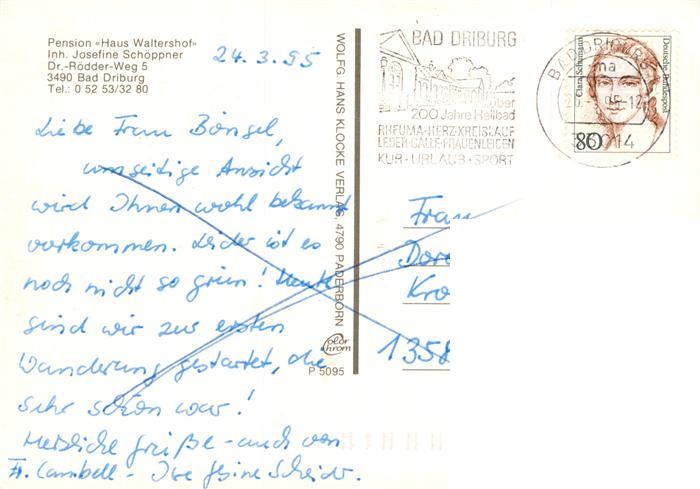 Pension «Haus Waltershof»
Inh. Josefine Schöppner
Dr.-Rödder-Weg 5
3490 Bad Driburg
Tel.: 0 52 53/32 80
24.3.95
Liebe Frau Büngel,
umseitige Ansicht
wird Ihnen wohl bekannt
vorkommen. Leider ist es
noch nicht so grün! Heute
sind wir zur ersten
Wanderung gestartet, die
sehr schön war!
Herzliche Grüße - auch von
Fr. - Ihre
WOLFG. HANS KLOCKE VERLAG, 4790 PADERBORN
color chrom
P 5095
BAD DRIBURG
über
200 Jahre Heilbad
RHEUMA-HERZ-KREISLAUF
LEBER-GALLE-FRAUENLEIDEN
KUR · URLAUB · SPORT
BAD DRIBURG
ma
95-12
33014
Clara Schumann
Deutsche Bundespost
80
Frau
Dor
Kro
1358